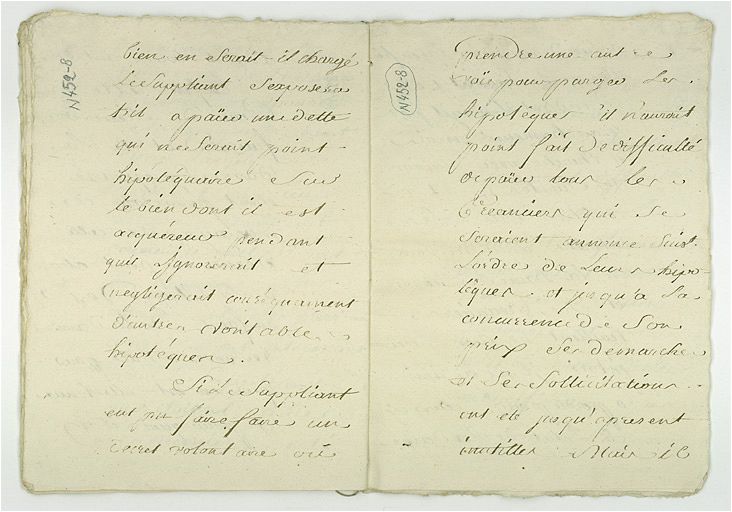 N452-8
bien en Serait-il chargé
le Suppliant S'exposera
t'il a païer une dette
qui ne Serait point
hipotéquaire Sur
le bien dont il est
acquéreur pendant
quil Ignorerait et
négligerait conséquament
d'autres véritables
hipotéques.
Si Le Suppliant
eut pu faire faire un
Decret volontaire ou
N452-8
prendre une autre
voie pour purger Les
hipotéques il n'auroit
point fait de difficulté
de païer tous les
Créanciers qui Se
Seraient annoncé Suivt.
L'ordre de Leurs hipo-
téques et jusqu'a La
concurrence de Son
prix Ses demarches
et Ses Sollicitations
ont été jusqu'apresent
inutilles Mais il